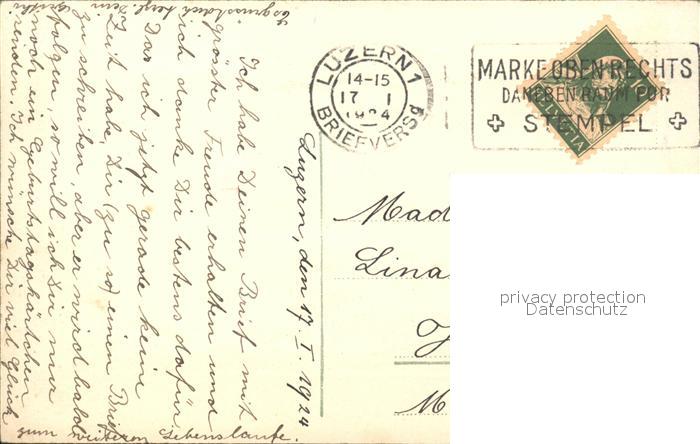 Luzern, den 17. I. 1924
Ich habe Deinen Brief mit
grösster Freude erhalten und
ich danke Dir bestens dafür.
Das ich jetzt gerade keine
Zeit habe, Dir (zu so) einen Brief
zu schreiben, aber er wird bald
folgen, so will ich Dir nur
noch ein Geburtstagskärtchen
senden. Ich wünsche Dir viel Glück
zum weiteren Lebenslaufe.
Es grüsst Dich herzl. Dein
LUZERN 1
14-15
17 I
1924
BRIEFVERS
MARKE OBEN RECHTS
DANEBEN RAUM FÜR
STEMPEL
HELVETIA
Mad
Lina
M
privacy protection
Datenschutz